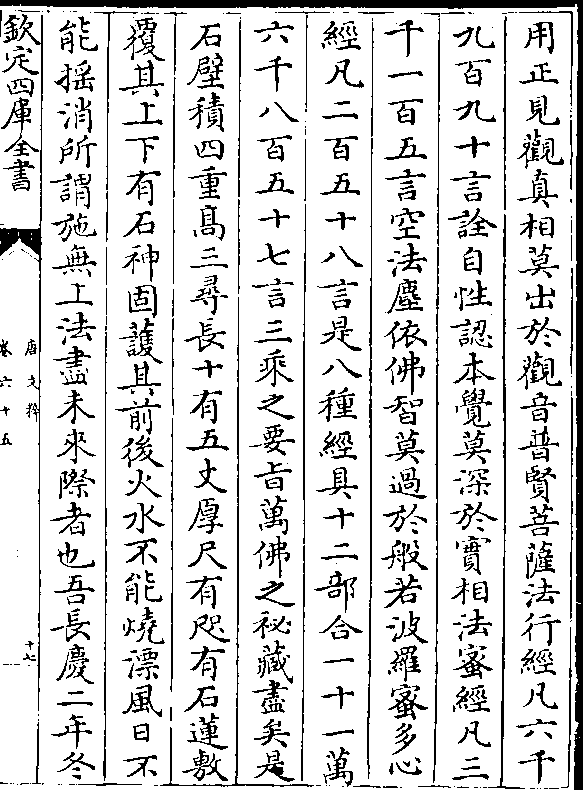 用正見觀真相莫出於觀音普賢菩薩法行經凡六千
九百九十言詮自性認本覺莫深於實相法蜜經凡三
千一百五言空法塵依佛智莫過於般若波羅蜜多心
經凡二百五十八言是八種經具十二部合一十一萬
六千八百五十七言三乘之要旨萬佛之秘藏盡矣是
石壁積四重高三尋長十有五丈厚尺有咫有石蓮敷
覆其上下有石神固護其前後火水不能燒漂風日不
能揺消所謂施無上法盡未來際者也吾長慶二年冬
欽定四庫全書
唐文粹
卷六十五
十七